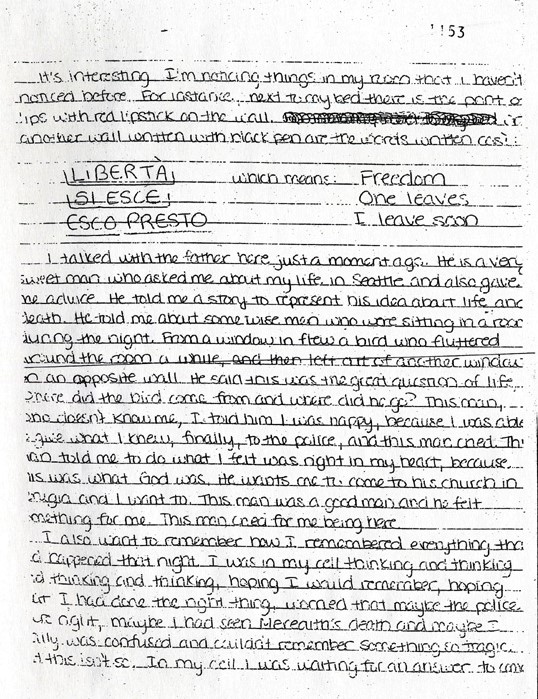 1153
It's interesting. I'm noticing things in my room that I haven't
noticed before. For instance, next to my bed there is the print o
lips with red lipstick on the wall.
another wall written with black pen are the words written così:
¡LIBERTÀ¡ which means: Freedom
¡SI ESCE¡ One leaves
ESCO PRESTO I leave soon
I talked with the father here just a moment ago. He is a very
sweet man who asked me about my life in Seattle and also gave
me advice. He told me a story to represent his idea about life and
death. He told me about some wise men who were sitting in a room
during the night. From a window in flew a bird who fluttered
around the room a while, and then left out of another window
on an opposite wall. He said this was the great question of life.
where did the bird come from and where did he go? This man,
who doesn't know me, I told him I was happy, because I was able
give what I knew, finally, to the police, and this man cried. Th
an told me to do what I felt was right in my heart, because
is was what God was. He wants me to come to his church in
rugia and I want to. This man was a good man and he felt
mething for me. This man cried for me being here.
I also want to remember how I remembered everything tha
d happened that night. I was in my cell thinking and thinking
d thinking and thinking, hoping I would remember, hoping
at I had done the right thing, worried that maybe the police
re right, maybe I had seen Meredith's death and maybe I
lly was confused and couldn't remember something so tragic.
t this isn't so. In my cell I was waiting for an answer to com